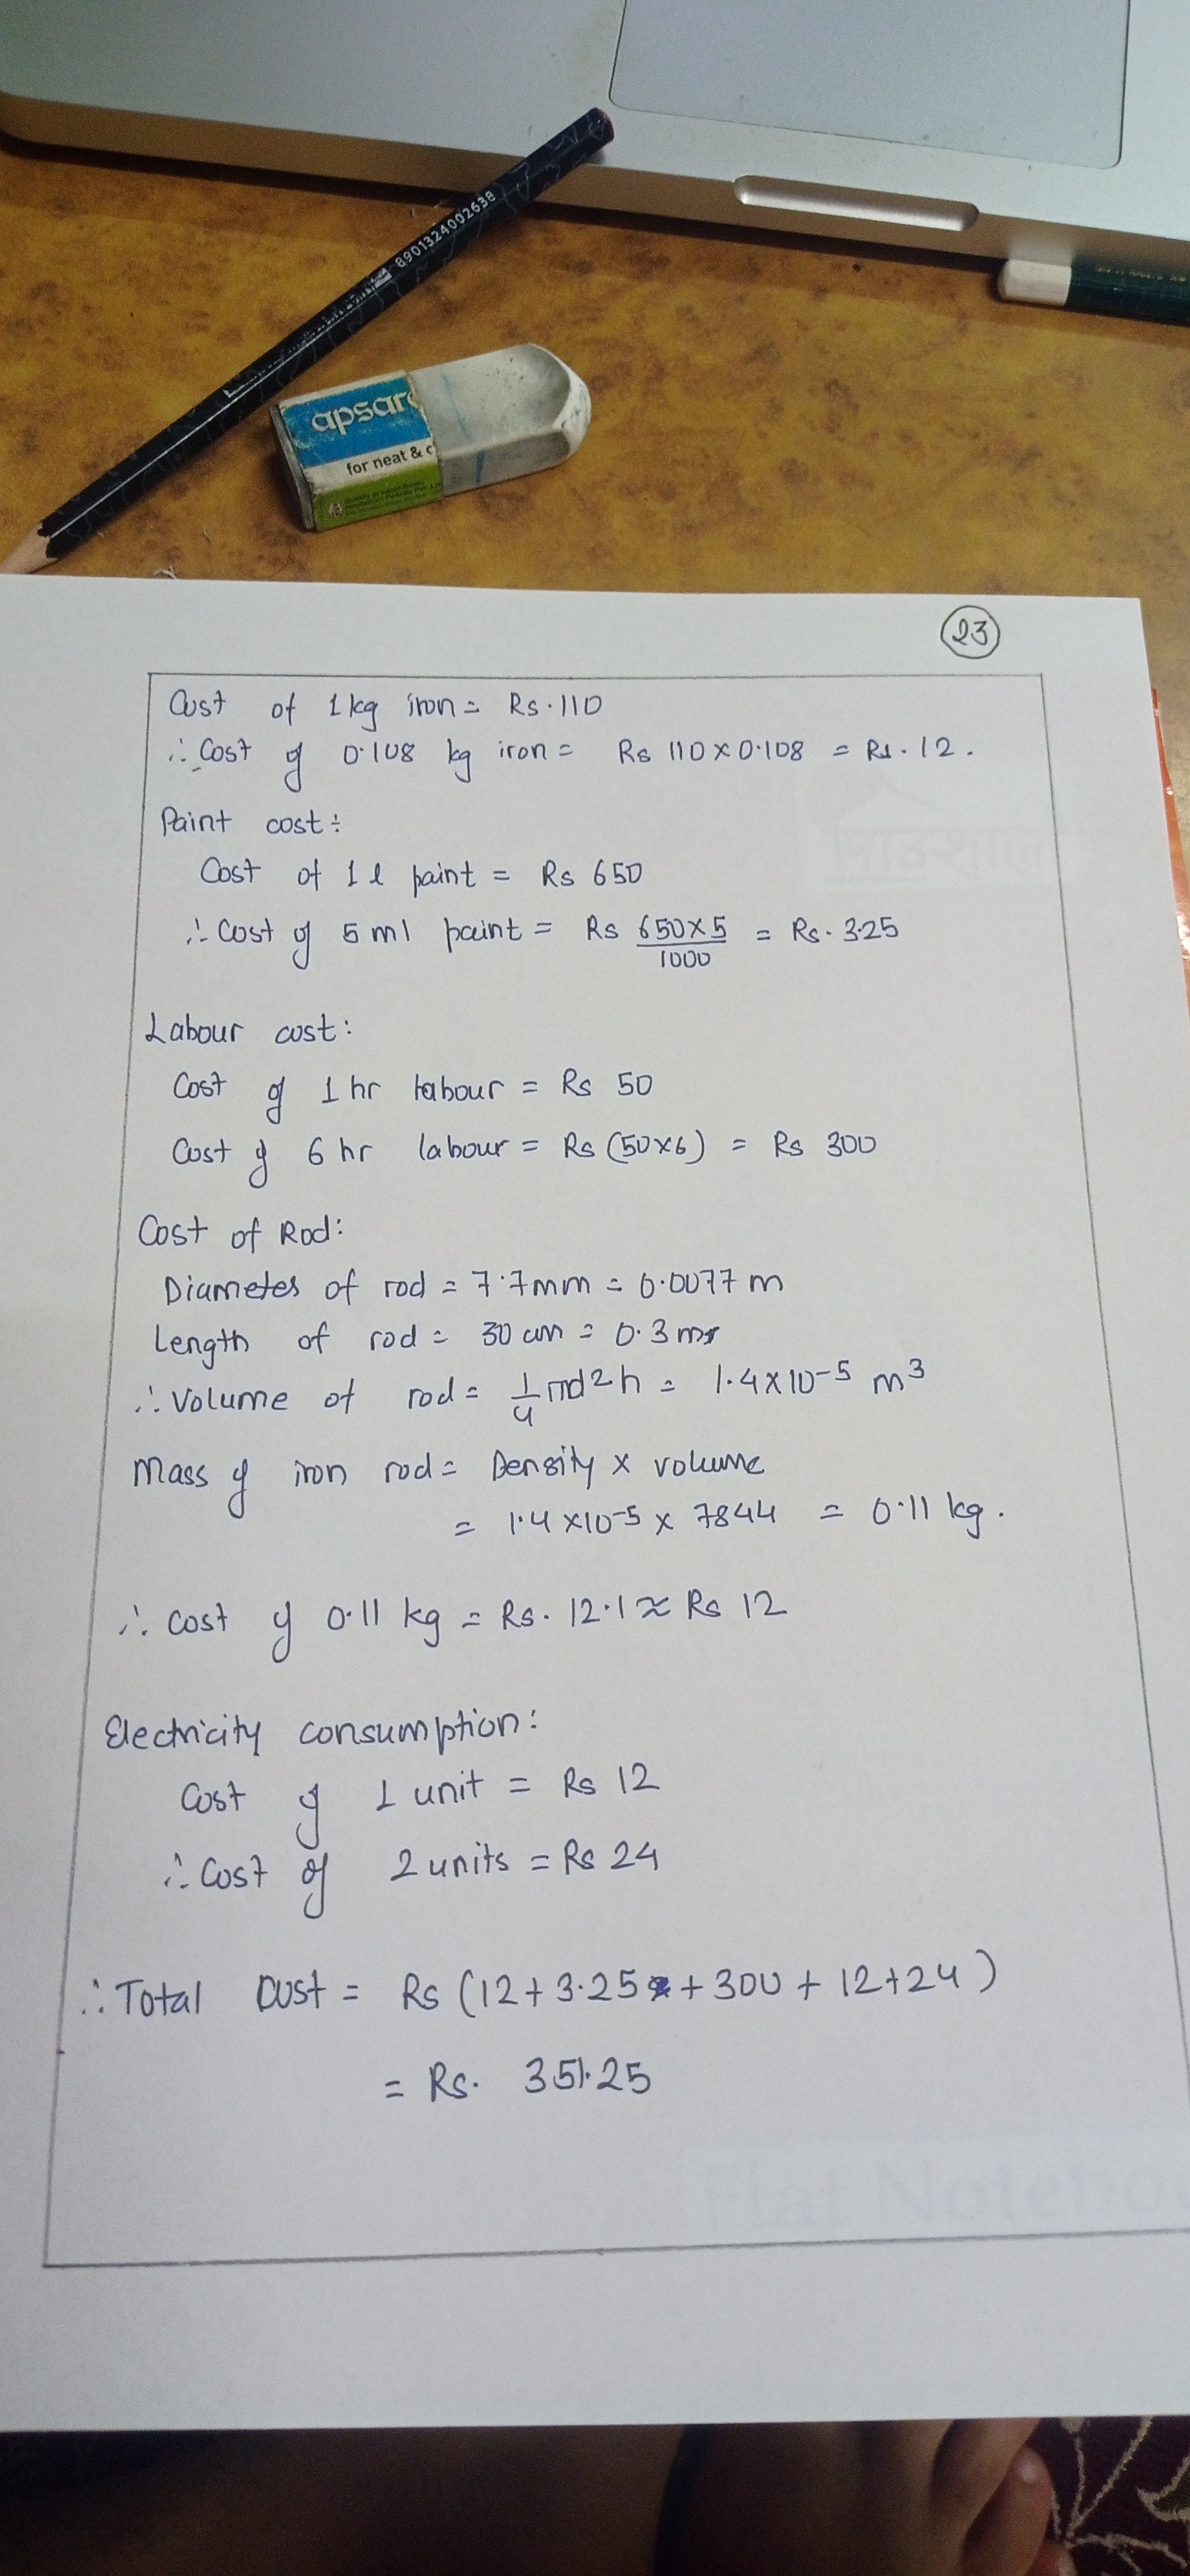 8901324002638
apsara
for neat & c
23
Cost of 1 kg iron = Rs. 110
∴ Cost of 0.108 kg iron = Rs 110 × 0.108 = Rs. 12.
Paint cost :
Cost of 1 l paint = Rs 650
∴ Cost of 5 ml paint = Rs 650×5/1000 = Rs. 3.25
Labour cost :
Cost of 1 hr labour = Rs 50
Cost of 6 hr labour = Rs (50×6) = Rs 300
Cost of Rod :
Diameter of rod = 7.7mm = 0.0077 m
Length of rod = 30 cm = 0.3 m
∴ Volume of rod = 1/4 πd²h = 1.4×10⁻⁵ m³
Mass of iron rod = Density × volume
= 1.4 ×10⁻⁵ × 7844 = 0.11 kg.
∴ Cost of 0.11 kg = Rs. 12.1 ≈ Rs 12
Electricity consumption :
Cost of 1 unit = Rs 12
∴ Cost of 2 units = Rs 24
∴ Total cost = Rs (12 + 3.25 + 300 + 12 + 24)
= Rs. 351.25
Flat Notebo